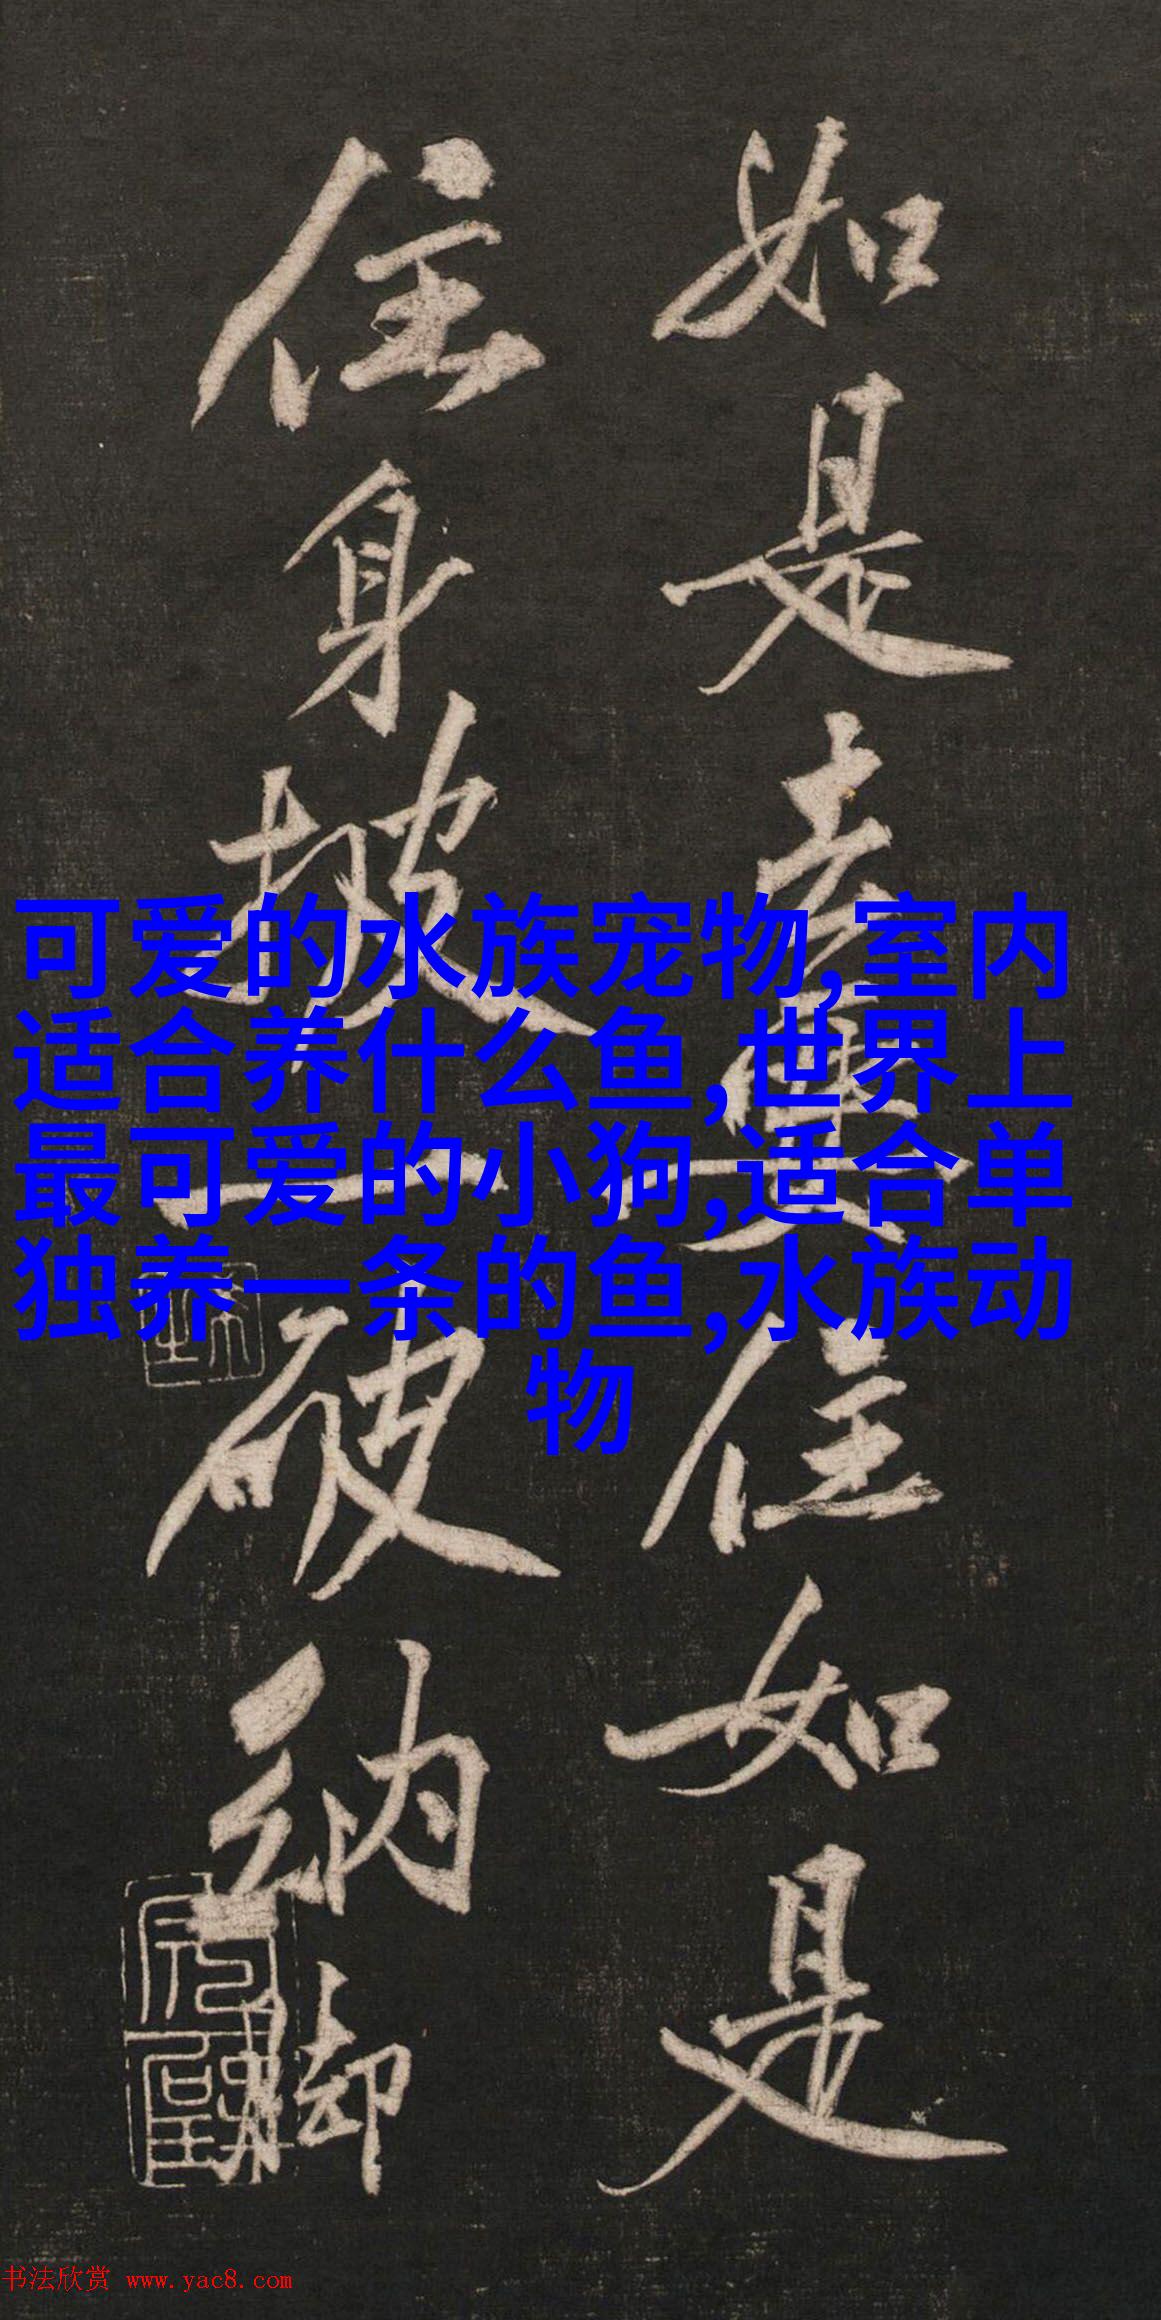 如是去住如是
住身披一破納脚
可爱的水族宠物,室内
适合养什么鱼,世界上
最可爱的小狗,适合单
独养一条的鱼,水族动
物
书法欣赏 www.yac8.com